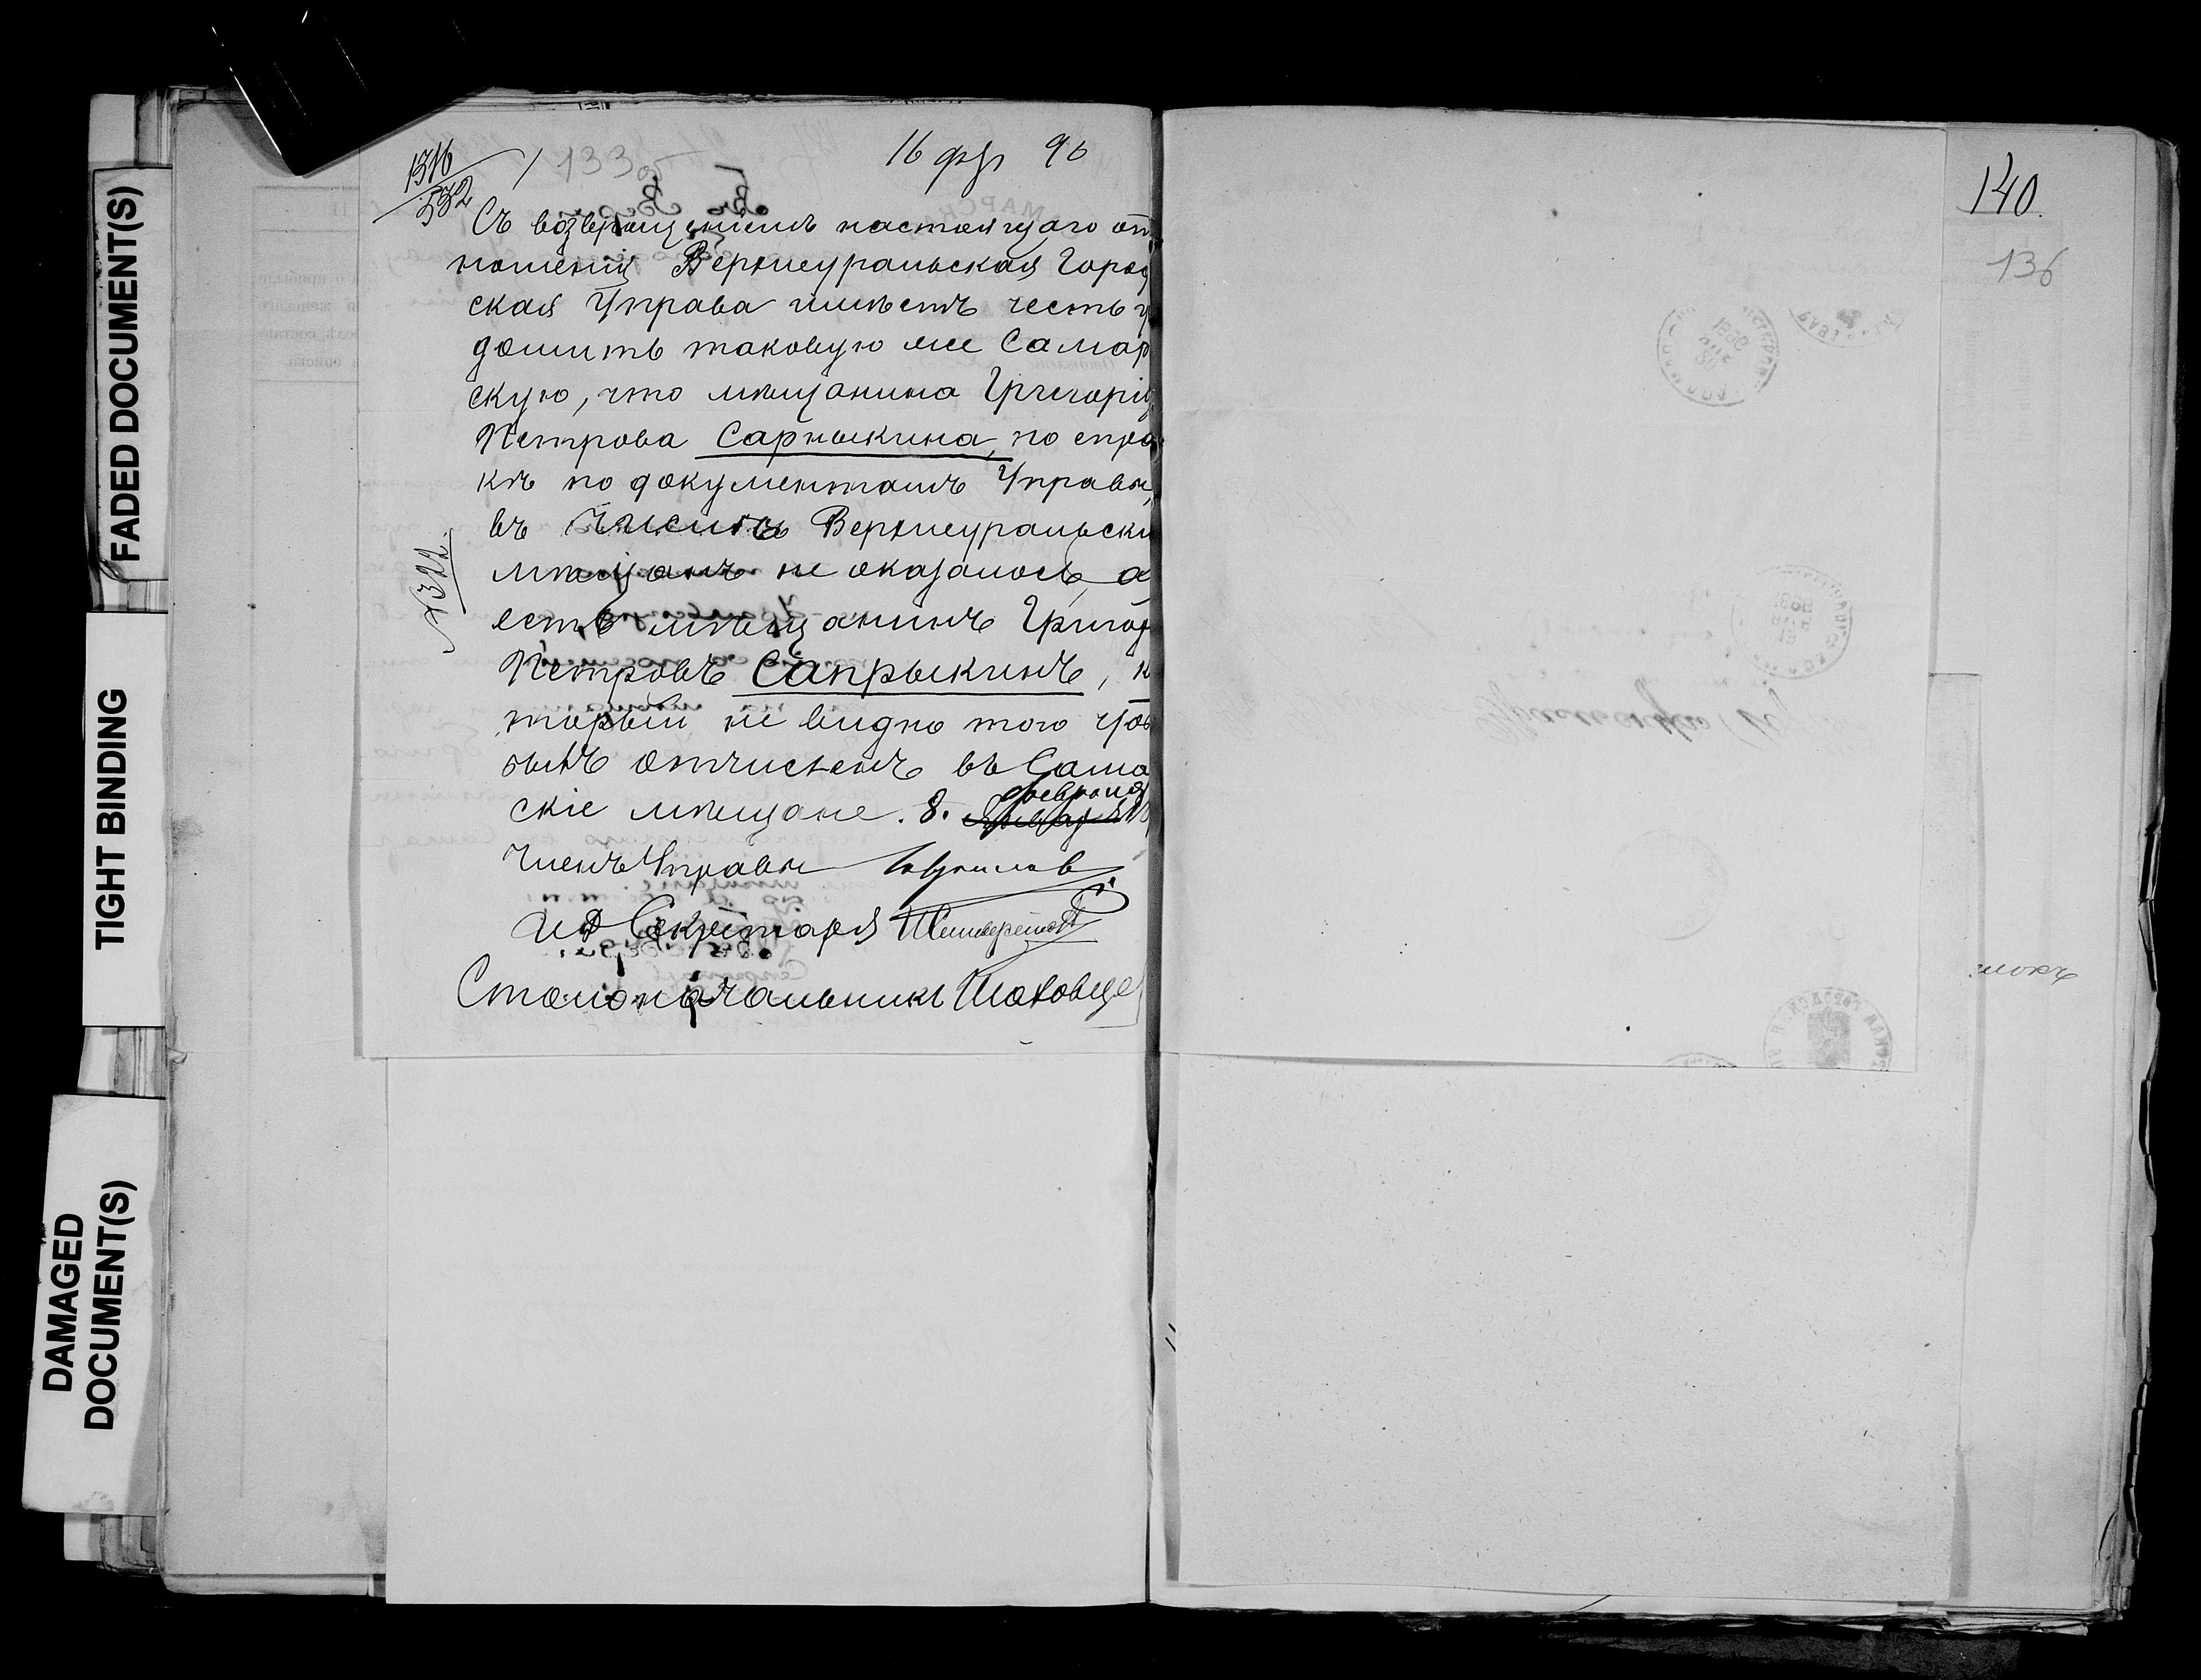 FADED DOCUMENT(S)
TIGHT BINDING
DAMAGED DOCUMENT(S)
1316
532
133об
16 фр 96
Съ возвращеніемъ настоящаго от
ношенія Верхнеуральская Город
ская Управа имѣетъ честь у
домить таковую же Самар
скую, что мѣщанина Григорія
Петрова Сарпыкина, по спра
кѣ по документамъ Управы,
въ числѣ Верхнеуральски
мѣщанъ не оказалось, а
есть мѣщанинъ Григор
Петровъ Сапрыкинъ, к
торый не видно того что
былъ отчисленъ въ Сама
скіе мѣщане. 8. февраля
№ 322.
Членъ Управы
ИД Секретаря
Столоначальникъ
140.
136